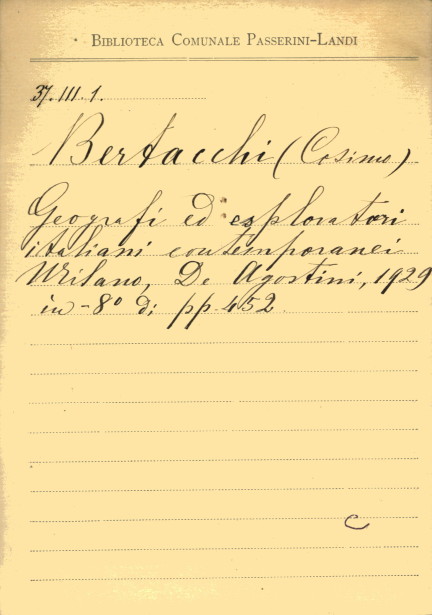 BIBLIOTECA COMUNALE PASSERINI-LANDI
37.III.1.
Bertacchi (Cosimo)
Geografi ed esploratori
italiani contemporanei
Milano, De Agostini, 1929
in-8º di pp. 452
C